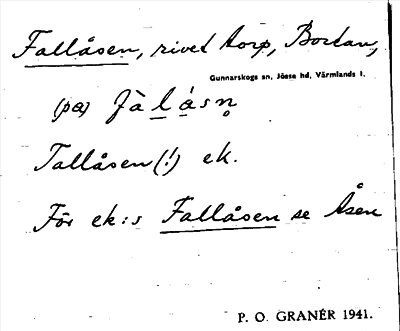 Fallåsen, rivet torp, Bortan,
Gunnarskogs sn, Jösse hd, Värmlands l.
(på) fàlåsn̥
Tallåsen(!) ek.
För ek:s Fallåsen se Åsen
P. O. GRANÉR 1941.